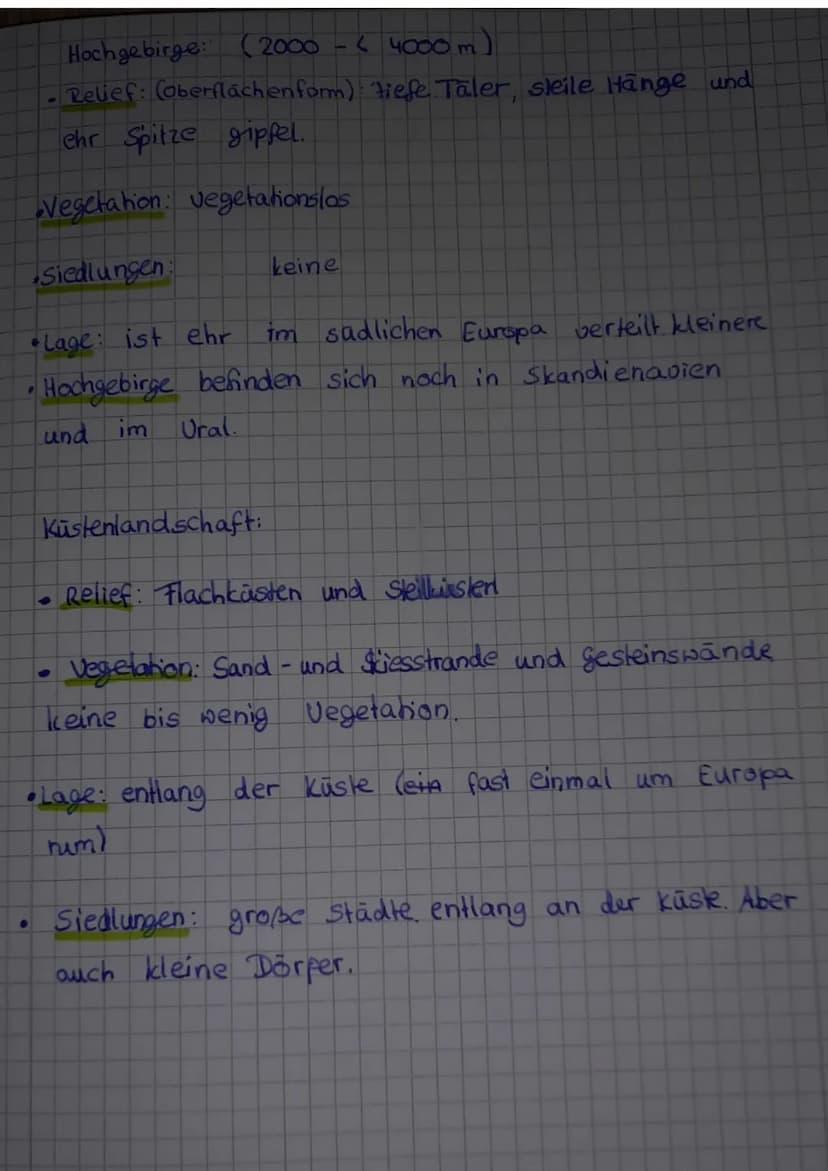 Hochgebirge: (2000 - < 4000 m)
- Relief: (Oberflächenform): tiefe Täler, steile Hänge und
ehr Spitze gipfel.
• Vegetation: vegetationslos
• Siedlungen: keine
• Lage: ist ehr im südlichen Europa verteilt kleinere
• Hochgebirge befinden sich noch in Skandienavien
und im Ural.
Küstenlandschaft:
• Relief: Flachküsten und Steilküsten
• Vegetation: Sand - und Kiesstrande und Gesteinswände
keine bis wenig Vegetation.
• Lage: entlang der Küste (ein fast einmal um Europa
rum)
• Siedlungen: große Städte entlang an der Küste. Aber
auch kleine Dörfer.